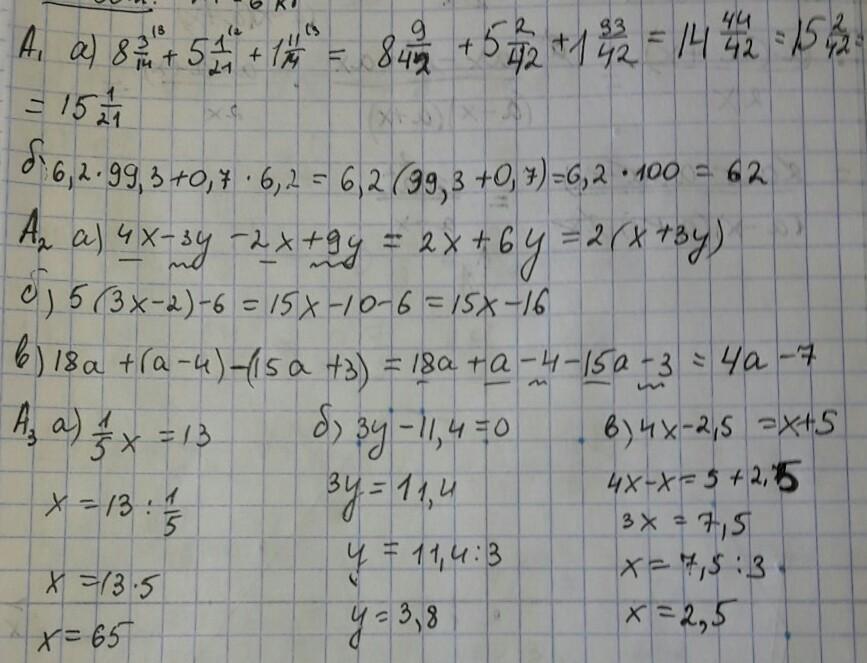 A₁ а) 8 3/14 + 5 1/21 + 1 11/14 = 8 9/42 + 5 2/42 + 1 33/42 = 14 44/42 = 15 2/42 =
= 15 1/21
б) 6,2 · 99,3 + 0,7 · 6,2 = 6,2 (99,3 + 0,7) = 6,2 · 100 = 62
A₂ а) 4x - 3y - 2x + 9y = 2x + 6y = 2(x + 3y)
б) 5(3x - 2) - 6 = 15x - 10 - 6 = 15x - 16
в) 18a + (a - 4) - (15a + 3) = 18a + a - 4 - 15a - 3 = 4a - 7
A₃ а) 1/5 x = 13 б) 3y - 11,4 = 0 в) 4x - 2,5 = x + 5
x = 13 : 1/5 3y = 11,4 4x - x = 5 + 2,5
x = 13 · 5 y = 11,4 : 3 3x = 7,5
x = 65 y = 3,8 x = 7,5 : 3
x = 2,5